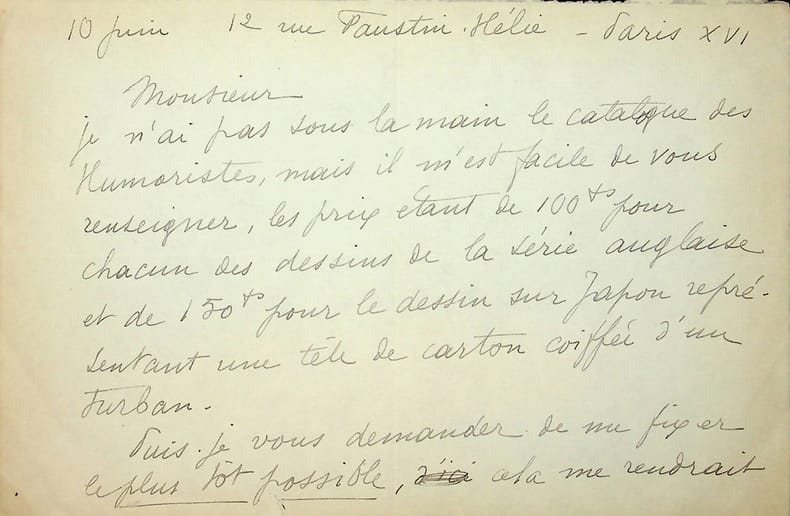 10 juin 12 rue Faustin-Hélie - Paris XVI
Monsieur
je n'ai pas sous la main le catalogue des
Humoristes, mais il m'est facile de vous
renseigner, les prix etant de 100 frs pour
chacun des dessins de la série anglaise
et de 150 frs pour le dessin sur Japon repré-
sentant une tête de carton coiffée d'un
turban.
Puis-je vous demander de me fixer
le plus tôt possible, d'ici cela me rendrait